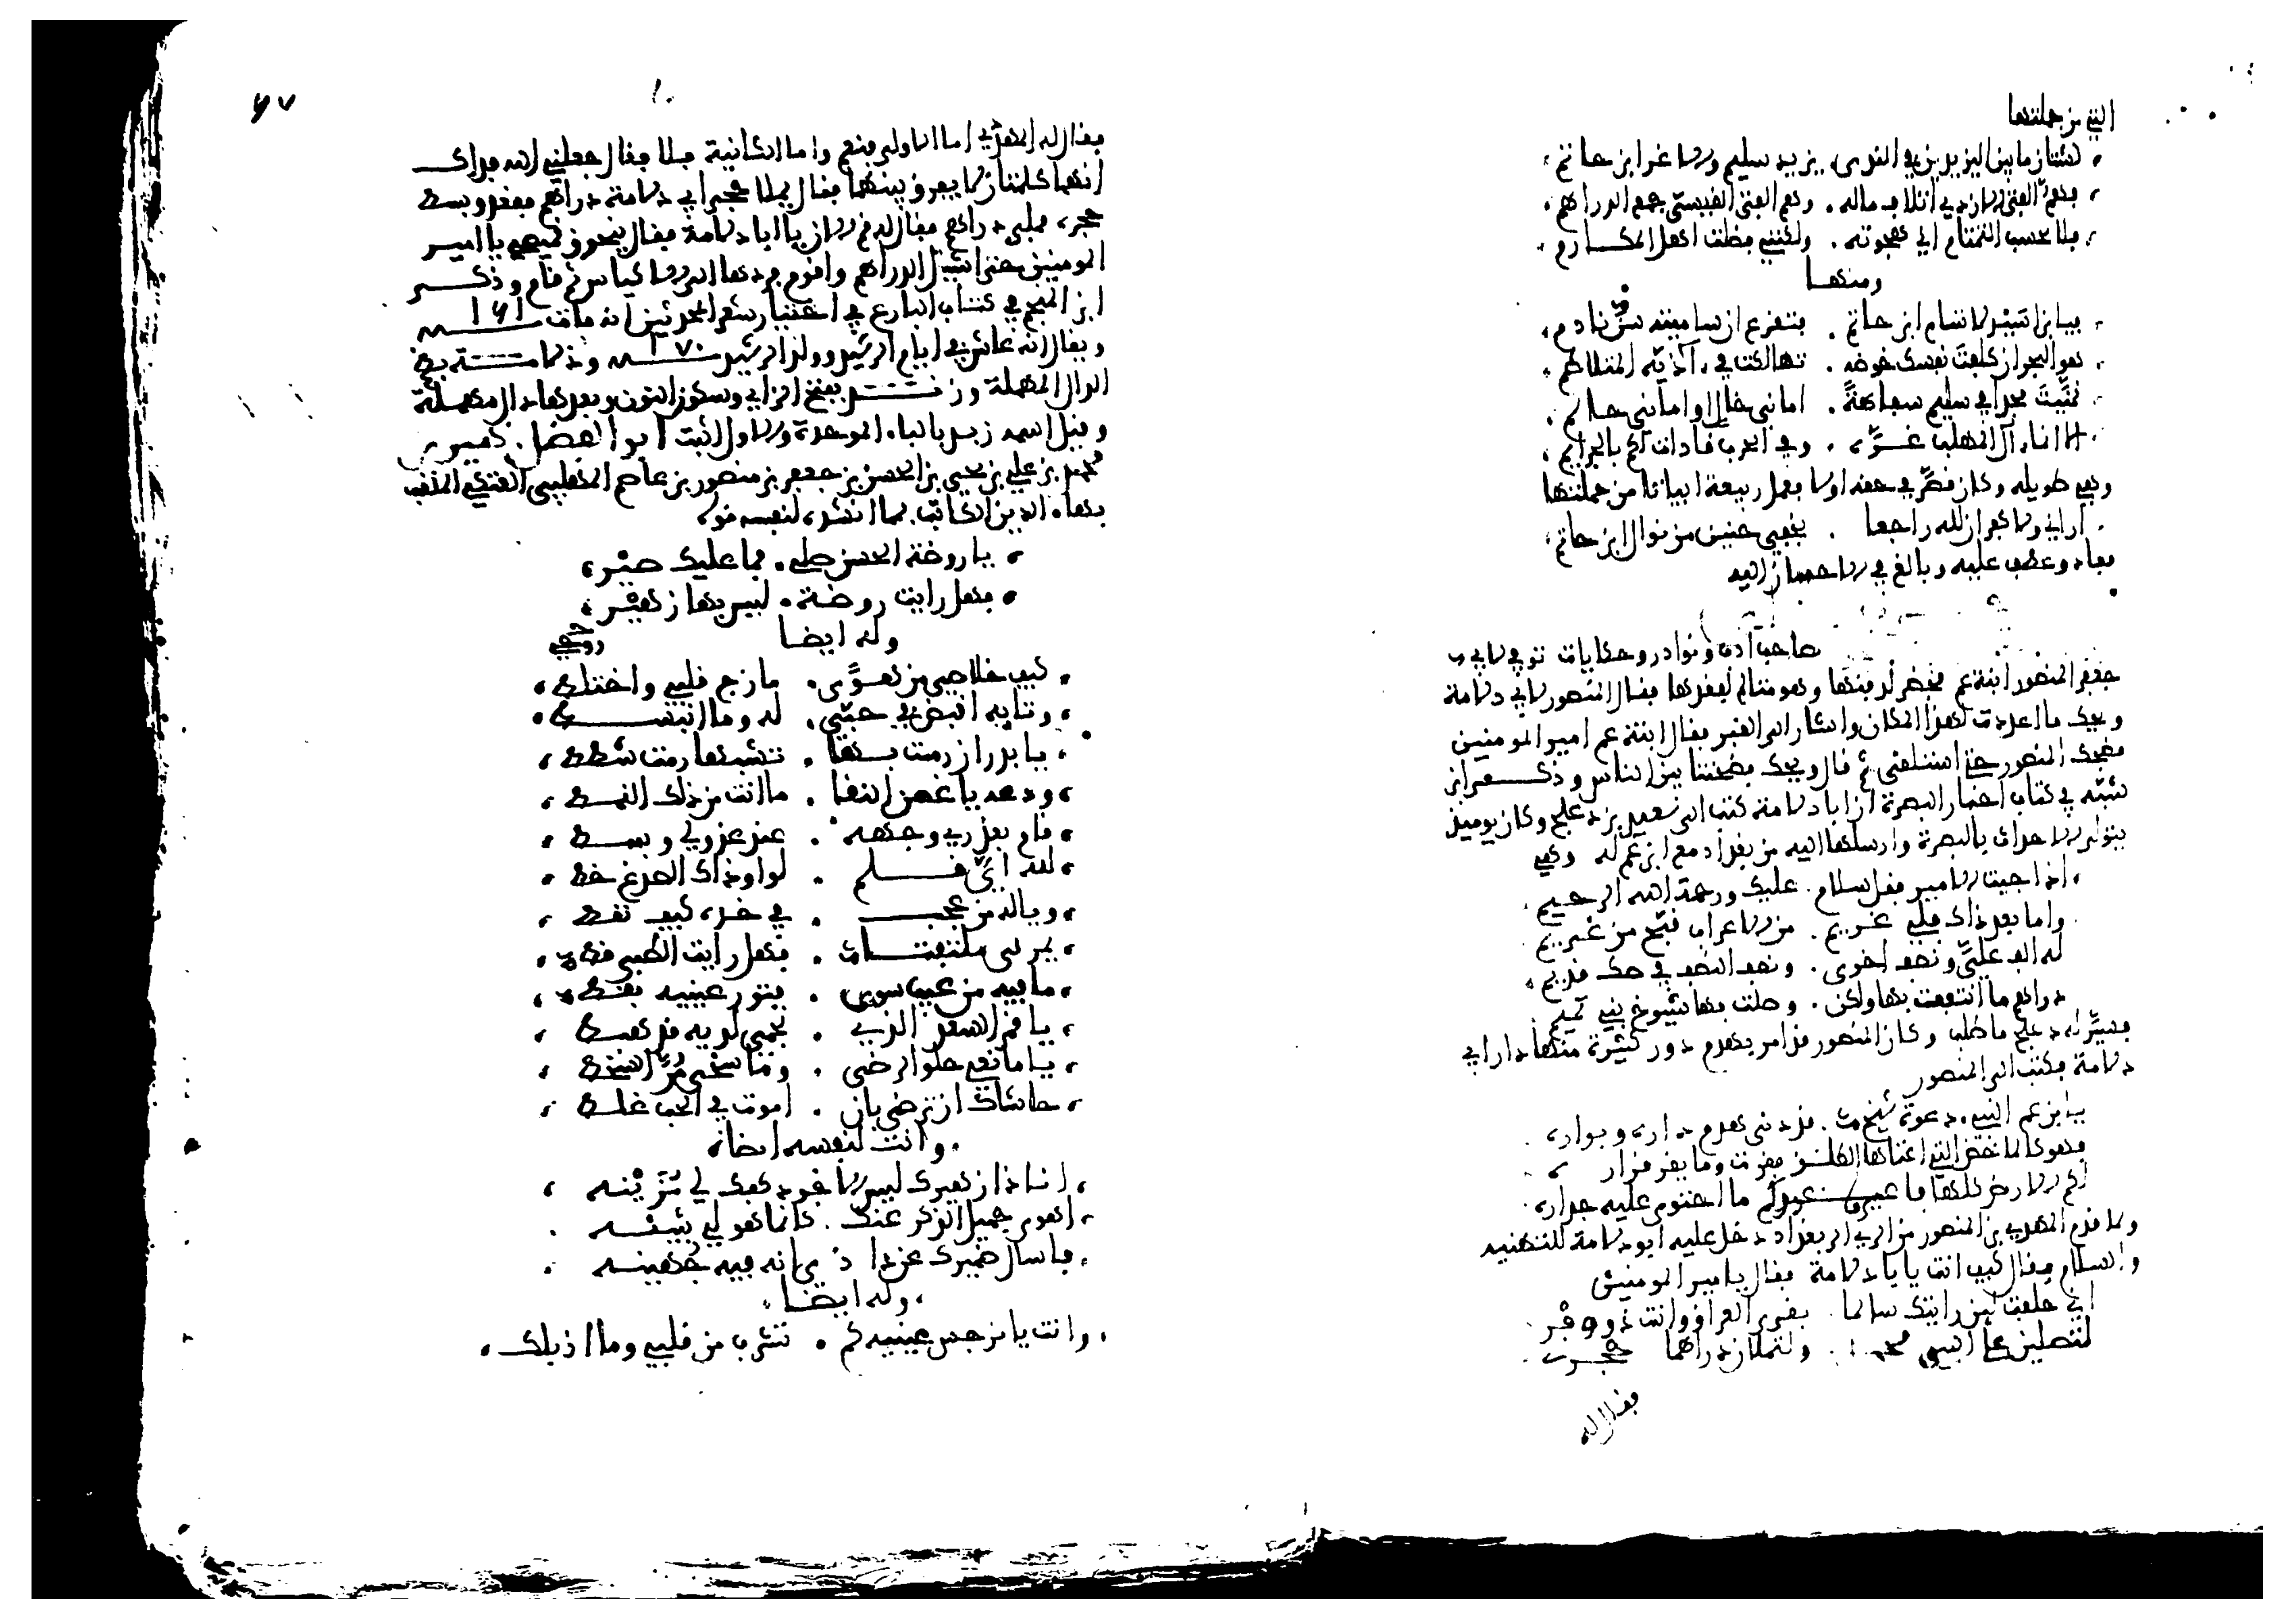 التي من جملتها
لشتان ما بين اليزيدين في الندى . يزيد سليم والاغر ابن حاتم
فهم الفتى الازدي اتلاف ماله . وهم الفتى القيسي جمع الدراهم
فلا يحسب التمتام اني هجوته . ولكنني فضلت اهل المكارم
ومنها
فيا ابن اسيد لا تسام ابن حاتم . فتقرع ان ساميته سن نادم
هو البحر ان كلفت نفسك خوضه . تهالكت في آذيه المتلاطم
تمنيت مجدا في سليم سفاهة . اماني خال او اماني حالم
الا انما آل المهلب غرة . وفي الحرب قادات لكم بالخزايم
وهي طويلة وكان قصر في حقه اولا فعمل ربيعة ابياتا من جملتها
اراني ولا كفران لله راجعا . بخفي حنين من نوال ابن حاتم
فعاد وعطف عليه وبالغ في الاحسان اليه
صاحب نوادر وحكايات توفي لابي
جعفر المنصور ابنة عم فحضر لدفنها وهو متالم لفقدها فقال المنصور لابي دلامة
ويحك ما اعددت لهذا المكان واشار الى القبر فقال ابنة عم امير المومنين
فضحك المنصور حتى استلقى ثم قال ويحك فضحتنا بين الناس وذكر عمر ابن
شبه في كتاب اخبار البصرة ان ابا دلامة كتب الى سعيد بن دعلج وكان يوميذ
يتولى الاحداث بالبصرة وارسلها اليه من بغداد مع ابن عم له وهي
اذا جيت الامير فقل سلام . عليك ورحمة الله الرحيم
واما بعد ذاك فلي غريم . من الاعراب قبح من غريم
له الف علي ونصف اخرى . ونصف النصف في صك قديم
دراهم ما انتفعت بها ولكن . وصلت بها شيوخ بني تميم
فسير له دعلج ما طلب وكان المنصور قد امر بهدم دور كثيرة منها دار ابي
دلامة فكتب الى المنصور
يا ابن عم النبي دعوة شيخ . قد دنى هدم داره وبواره
فهو كالماخض التي اعتادها الطلق فقرت وما يقر قراره
لكم الارض كلها فاعيروا عبدكم ما احتوى عليه جداره
ولما قدم المهدي بن المنصور من الري الى بغداد دخل عليه ابو دلامة للتهنية
والسلام فقال كيف انت يا ابا دلامة فقال يا امير المومنين
اني حلفت لين رايتك سالما . بقرى العراق وانت ذو وفر
لتصلين على النبي محمد . ولتملان دراهما حجري
فقال له
٦٧
فقال له المهدي اما الاولى فنعم واما الثانية فلا فقال جعلني الله فداك
انهما كلمتان لا يفرق بينهما فقال يملا حجر ابي دلامة دراهم فقعد وبسط
حجره فملي دراهم فقال له قم الان يا ابا دلامة فقال ينخرق قميصي يا امير
المومنين حتى اشيل الدراهم واقوم فردها الى الاكياس ثم قام وذكر
ابن المنجم في كتاب البارع في اختيار شعر المحدثين انه مات ١٦١
ويقال انه عاش في ايام الرشيد وولي الرشيد ١٧٠ ودلامة بفتح
الدال المهملة وزند بفتح الزاي وسكون النون وبعدها دال مهملة
وقيل اسمه زبد بالباء الموحدة والاول اثبت ابو الفضل زهير
محمد بن علي بن يحيى بن الحسن بن جعفر بن منصور بن عاصم المهلبي العتكي الملقب
بهاء الدين الكاتب مما انشده لنفسه قوله
يا روضة الحسن صلي . فما عليك ضير
فهل رايت روضة . ليس بها زهير
وله ايضا
كيف خلاصي من هوى . مازج قلبي واختلط روحي
وتايه اقبض في حبي . له وما انبسط
يا بدر ان رمت به . تشبها رمت شطط
ودعه يا غصن النقا . ما انت من ذاك النمط
قام بعذري وجهه . عند عذولي وبسط
لله اي قلم . لواو ذاك الصدغ خط
ويا له من عجب . في خده كيف نقط
يمر بي ملتفتا . فهل رايت الظبي قط
ما فيه من عيب سوى . فتور عينيه فقط
يا قمر السعد الذي . نجمي لديه قد هبط
يا مانعي حلو الرضى . وما نحي مر السخط
حاشاك ان ترضى بان . اموت في الحب غلط
وانشد لنفسه ايضا
انا ذا زهيرك ليس الا جود كفك لي مزينه
اهوى جميل الذكر عنك . كانما هو لي بثينه
فاسال ضميرك عن ودادي انه فيه جهينه
وله ايضا
وانت يا نرجس عينيه كم . تشرب من قلبي وما اذبلك